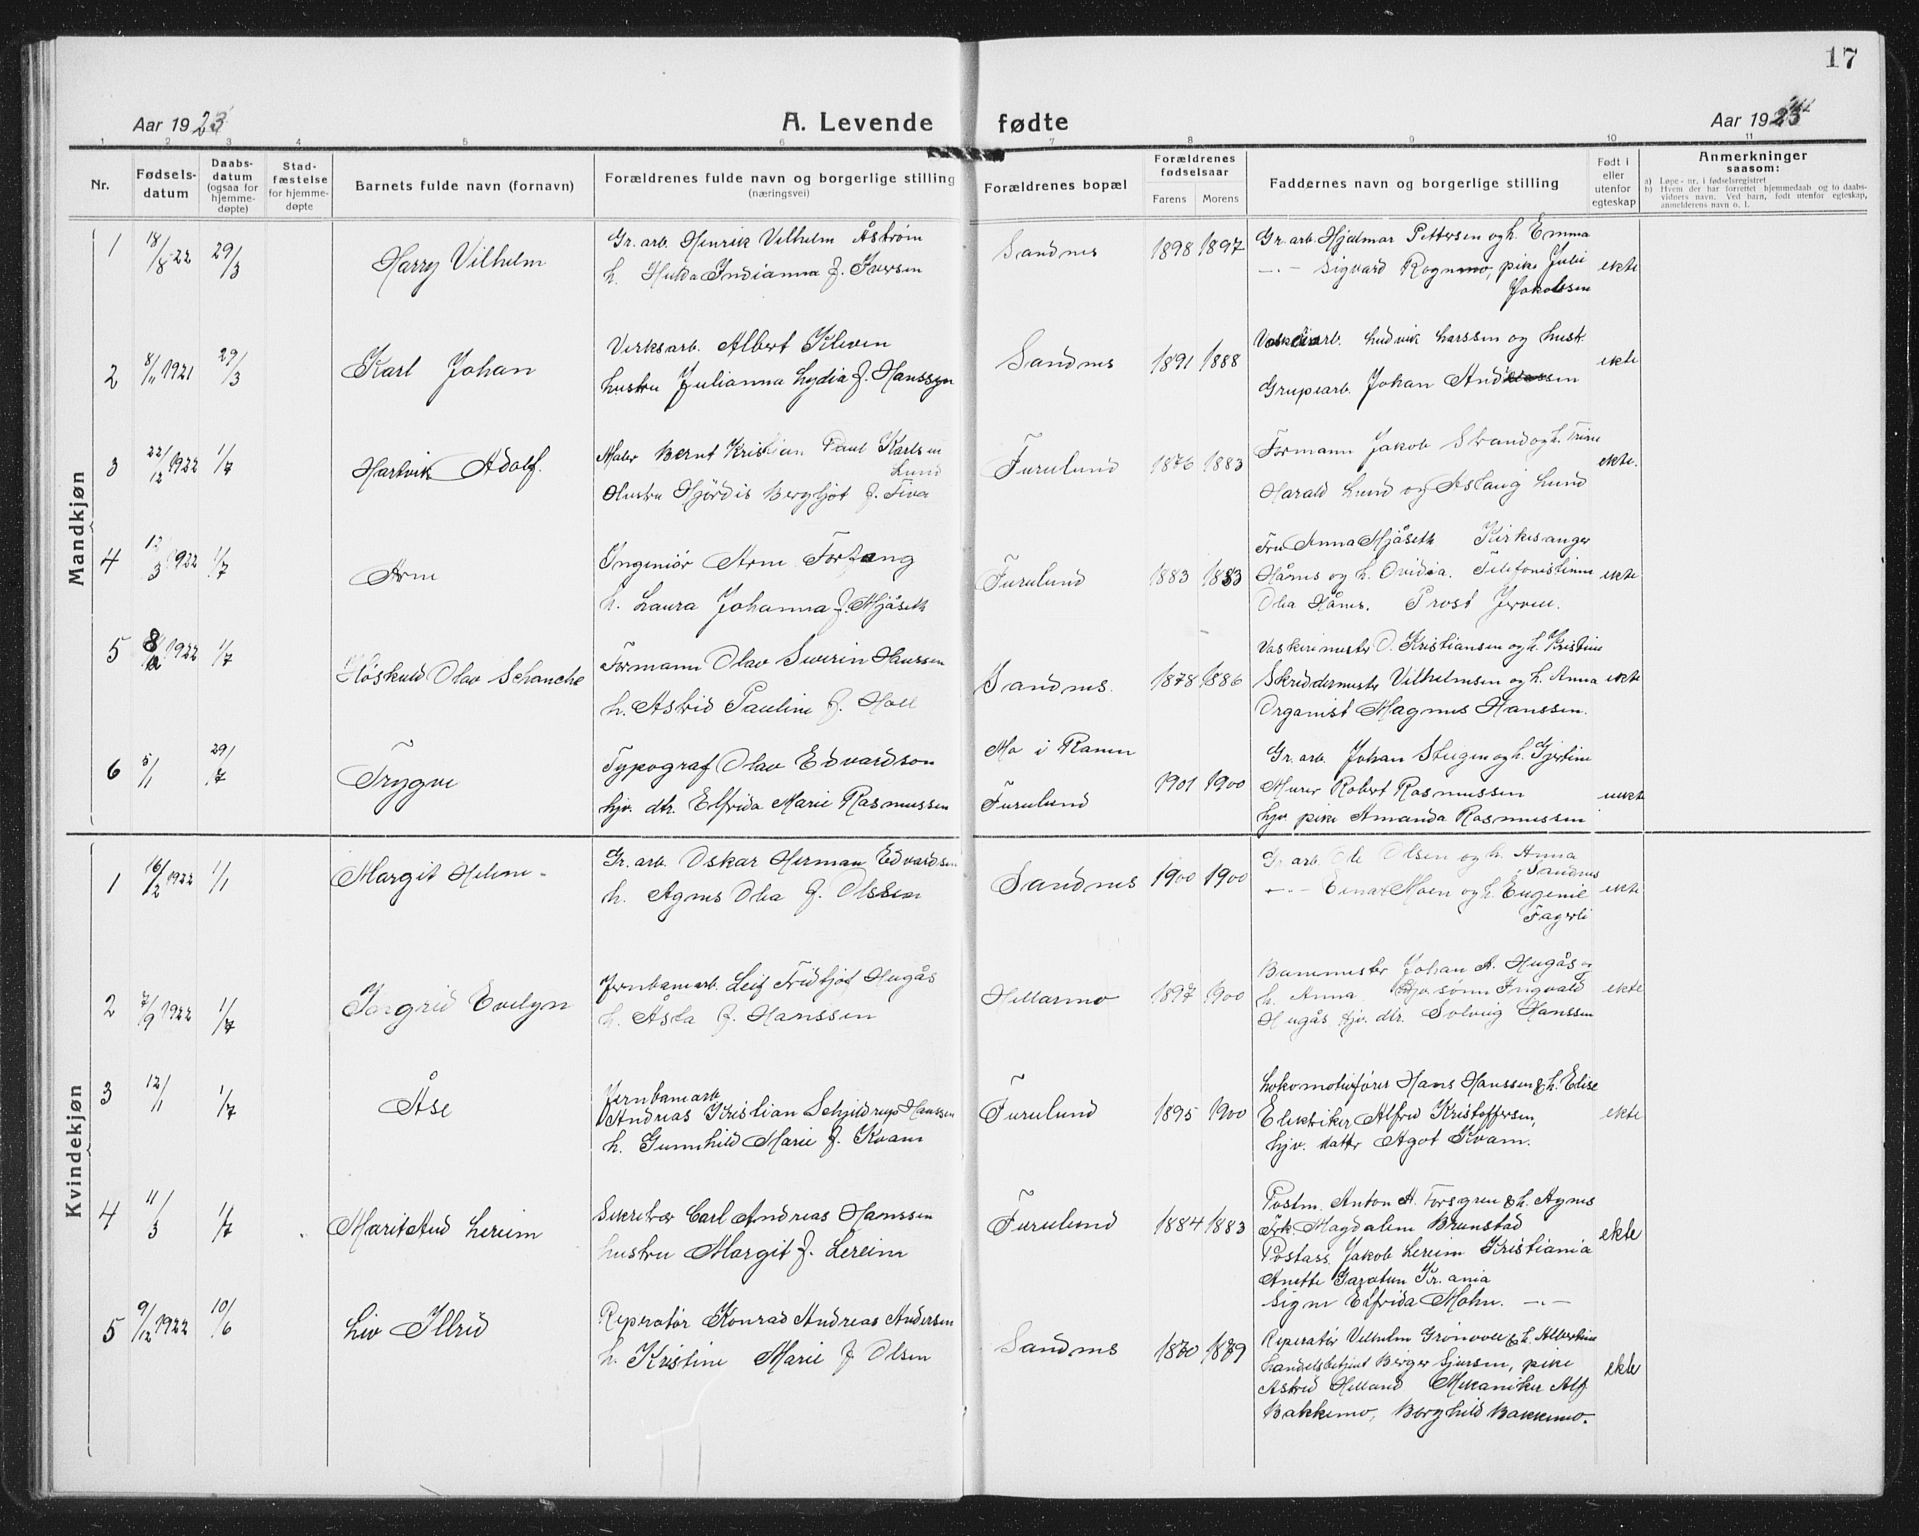 17
Aar 1923
A. Levende fødte
Aar 1923
1 2 3 4 5 6 7 8 9 10 11
Nr.
Fødsels-
datum
Daabs-
datum
(ogsaa for
hjemme-
døpte)
Stad-
fæstelse
for hjemme-
døpte
Barnets fulde navn (fornavn)
Forældrenes fulde navn og borgerlige stilling
(næringsvei)
Forældrenes bopæl
Forældrenes
fødselsaar
Farens Morens
Faddernes navn og borgerlige stilling
Født i
eller
utenfor
egteskap
Anmerkninger
saasom:
a) Løpe-nr. i fødselsregistret
b) Hvem der har forrettet hjemmedaab og to daabs-
vidners navn. Ved barn, født utenfor egteskap,
anmelderens navn o. l.
Mandkjøn
1 18/8 22 29/3 Harry Vilhelm
Gr. arb. Henrik Vilhelm Åstrøm
h. Hulda Indianna f. Iversen
Sandnes 1898 1897
Gr. arb. Hjalmar Pettersen og h. Emma
-"- Sigvard Rognmo, pike Julie
Jakobsen
ekte
2 8/11 1921 29/3 Karl Johan
Verksarb. Albert Kleven
hustru Julianna Lydia f. Hanssen
Sandnes 1891 1888
Ludvik Larssen og hust.
Grupearb. Johan Andreassen
ekte
3 22/12 1922 1/7 Hartvik Adolf.
Maler Bernt Kristian Paul Karlsen
Lund
Hustru Hjördis Bergljot f. Tiva
Furulund 1876 1883
Formann Jakob Strand og h. Trine
Harald Lund og Aslaug Lund
ekte.
4 12/3 1922 1/7 Arne
Ingeniör Arne Fortang
h. Laura Johanna f. Mjåseth
Furulund 1883 1883
Fru Anna Mjåseth Kirkesanger
Hårnes og h. Ovidia. Telefonistinne
Olea Hårnes. Prost Jerven.
ekte
5 8/ 1922 1/7 Höskuld Olav Schanche
Formann Olav Severin Hanssen
h. Astrid Pauline f. Holl
Sandnes. 1878 1886
Vaskerimester O. Kristiansen og h. Kristine
Skreddermester Vilhelmsen og h. Anna
Organist Magnus Hanssen.
ekte
6 5/1 29/7 Trygve
Typograf Olav Edvardson
hjv. dtr. Elfrida Marie Rasmussen
Mo i Ranen
Furulund 1901 1900
Gr. arb. Johan Stugen og h. Gjertine
Murer Robert Rasmussen
hjv pike Amanda Rasmussen
uekte
Kvindekjøn
1 16/2 1922 1/1 Margit Helene -
Gr. arb. Oskar Herman Edvardsen
h. Agnes Olea f. Olssen
Sandnes 1900 1900
Gr arb Ole Olsen og h. Anna
Sandnes
-"- Einar Moen og h. Eugenie
Fagerli
ekte
2 7/9 1922 1/7 Ingrid Evelyn
Jernbanearb. Leif Fridtjof Hugås
h. Åsta f. Hanssen
Hellarmo 1897 1900
Banemester Johan A. Hugås og
h. Anna hjv sönn Ingvald
Hugås hjv. dtr. Solveig Hanssen
ekte
3 12/1 1/7 Åse
Jernbanearb
Andreas Kristian Schjeldrup Hanssen
h. Gunnhild Marie f. Kvam
Furulund 1895 1900
Lokomotivfører Hans Hanssen & h. Elise
Elektriker Alfred Kristoffersen,
hjv. datter Agot Kvam.
ekte
4 11/3 1/7 Marit Aud Lereim
Sekretær Carl Andreas Hanssen
hustru Margit f. Lereim
Furulund 1884 1883
Postm. Anton A. Forsgren & h. Agnes
Frk. Magdalene Brunstad
Postass. Jakob Lereim Kristiania
Anette Garatun Kr.ania
Signe Elfrida Mohn. -"-
ekte
5 9/12 1922 10/6 Liv Illrid
Reperatør Konrad Andreas Andersen
h. Kristine Marie f Olsen
Sandnes 1870 1879
Reperatör Vilhelm Grönvoll & h. Albertine
Handelsbetjent Birger Sjursen, pike
Astrid Helland Mekaniker Alf
Bakkemo, Borghild Bakkemo.
ekte